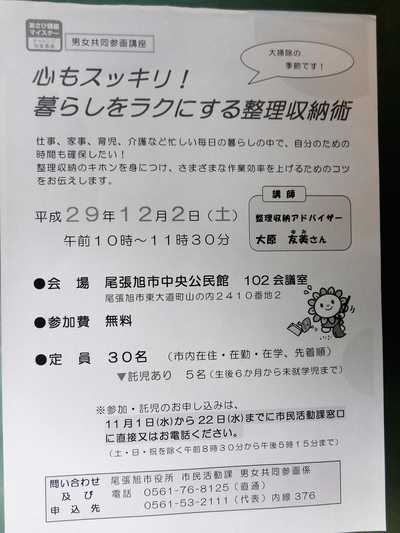 あさひ健康
マイスター
男女共同参画講座
大掃除の
季節です！
心もスッキリ！
暮らしをラクにする整理収納術
仕事、家事、育児、介護など忙しい毎日の暮らしの中で、自分のための
時間も確保したい！
整理収納のキホンを身につけ、さまざまな作業効率を上げるためのコツ
をお伝えします。
講師
整理収納アドバイザー
大原 友美さん
平成29年12月2日（土）
午前10時～11時30分
●会 場 尾張旭市中央公民館 102会議室
尾張旭市東大道町山の内2410番地2
●参加費 無料
●定 員 30名 （市内在住・在勤・在学、先着順）
▼託児あり 5名（生後6か月から未就学児まで）
※参加・託児のお申し込みは、
11月1日(水)から22日(水)までに市民活動課窓口
に直接又はお電話ください。
（土・日・祝を除く午前8時30分から午後5時15分まで）
問い合わせ
及 び
申 込 先
尾張旭市役所 市民活動課 男女共同参画係
電話 0561-76-8125（直通）
0561-53-2111（代表）内線376